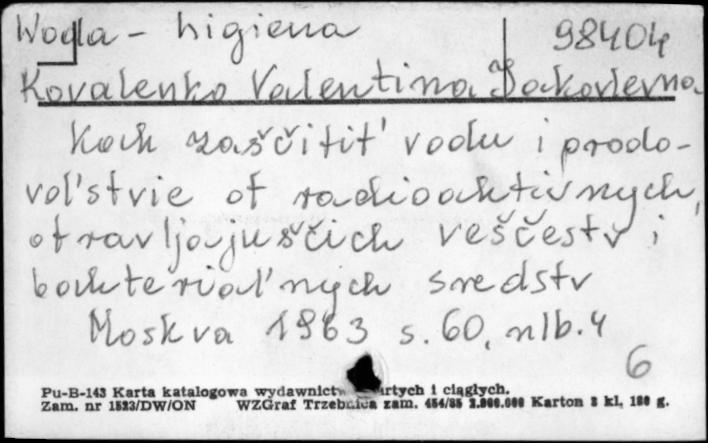 Woda - higiena 98404
Kovalenko Valentina Jakovlevna
Kak zaščitit' vodu i prodo-
vol'stvie ot radioaktivnych,
otravljajuščich veščestv i
bakterial'nych sredstv
Moskva 1963 s. 60, nlb. 4
6
Pu-B-143 Karta katalogowa wydawnictw zwartych i ciągłych.
Zam. nr 1523/DW/ON WZGraf Trzebnica zam. 454/85 2.000.000 Karton 2 kl. 180 g.